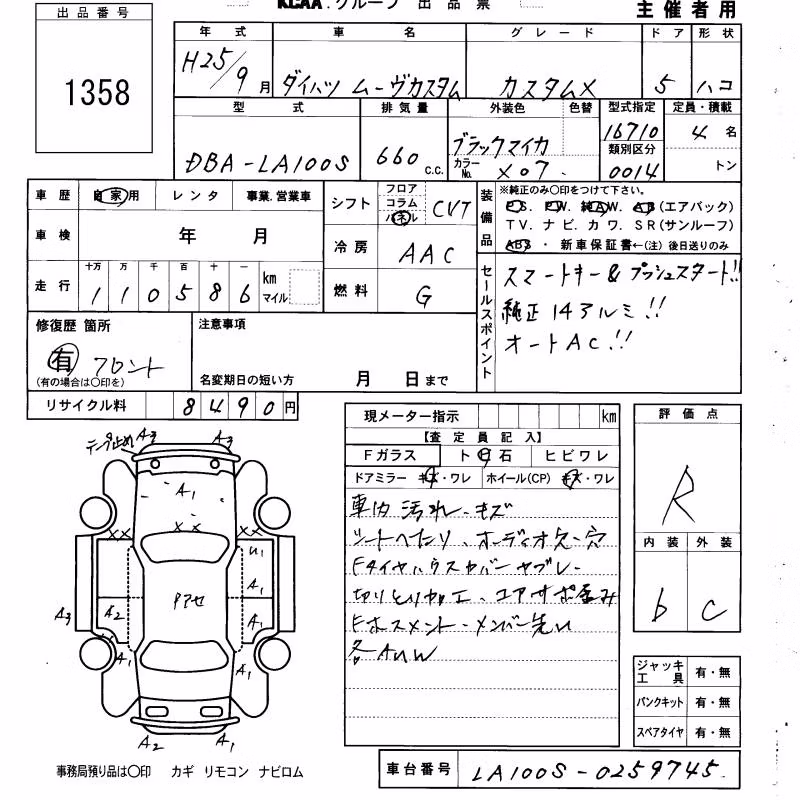 KCAA.グループ 出品票
主催者用
出品番号
1358
年式 車名 グレード ドア 形状
H25/9月 ダイハツ ムーヴカスタム カスタムX 5 ハコ
型式 排気量 外装色 色替 型式指定 定員・積載
DBA-LA100S 660 c.c. ブラックマイカ 16710 4名
カラーNo. X07. 類別区分 0014 トン
車歴 自家用 レンタ 事業.営業車
車検 年 月
走行 十万 万 千 百 十 一
110586 km マイル
シフト フロア コラム パネル CVT
冷房 AAC
燃料 G
装備品
※純正のみ〇印をつけて下さい。
P.S. P.W. 純AW. AB(エアバック)
TV. ナビ. カワ. SR(サンルーフ)
ABS ・ 新車保証書←(注) 後日送りのみ
セールスポイント
スマートキー&プッシュスタート!!
純正14アルミ!!
オートAC!!
修復歴 箇所
有 フロント
(有の場合は〇印を)
注意事項
名変期日の短い方 月 日まで
リサイクル料 8490円
現メーター指示 km
【査定員記入】
Fガラス ト 石 ヒビワレ
ドアミラー キズ・ワレ ホイール(CP) キズ・ワレ
車内汚れ.キズ
シートヘたり、オーディオ欠-穴
Fタイヤハウスカバーヤブレ
切りとり加工、コアサポ歪み
メンバー
各AUW
評価点
R
内装 外装
b C
ジャッキ工具 有・無
パンクキット 有・無
スペアタイヤ 有・無
車台番号 LA100S-0259745
テープ止め A3 A3
A1
XX XX
U1
A1
A3 A2 A1
A1 A1
A2 A1
事務局預り品は〇印 カギ リモコン ナビロム